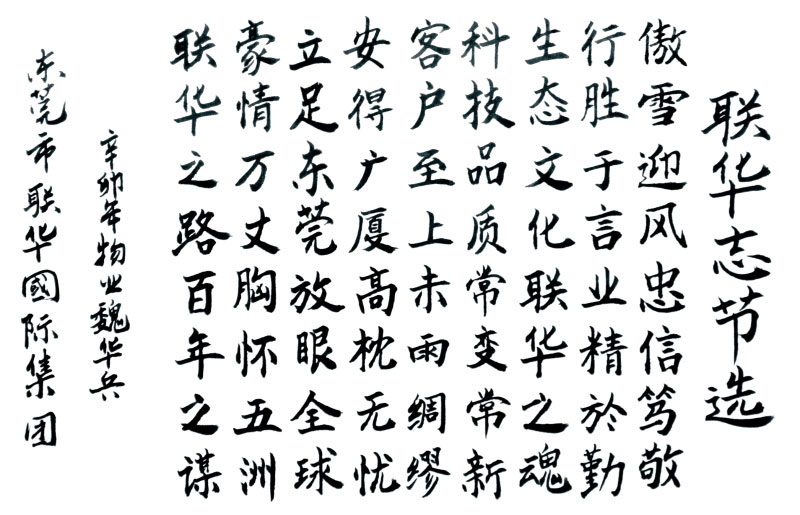 联华志节选
傲雪迎风忠信笃敬
行胜于言业精於勤
生态文化联华之魂
科技品质常变常新
客户至上未雨绸缪
安得广厦高枕无忧
立足东莞放眼全球
豪情万丈胸怀五洲
联华之路百年之谋
辛卯年物业魏华兵
东莞市联华國际集团